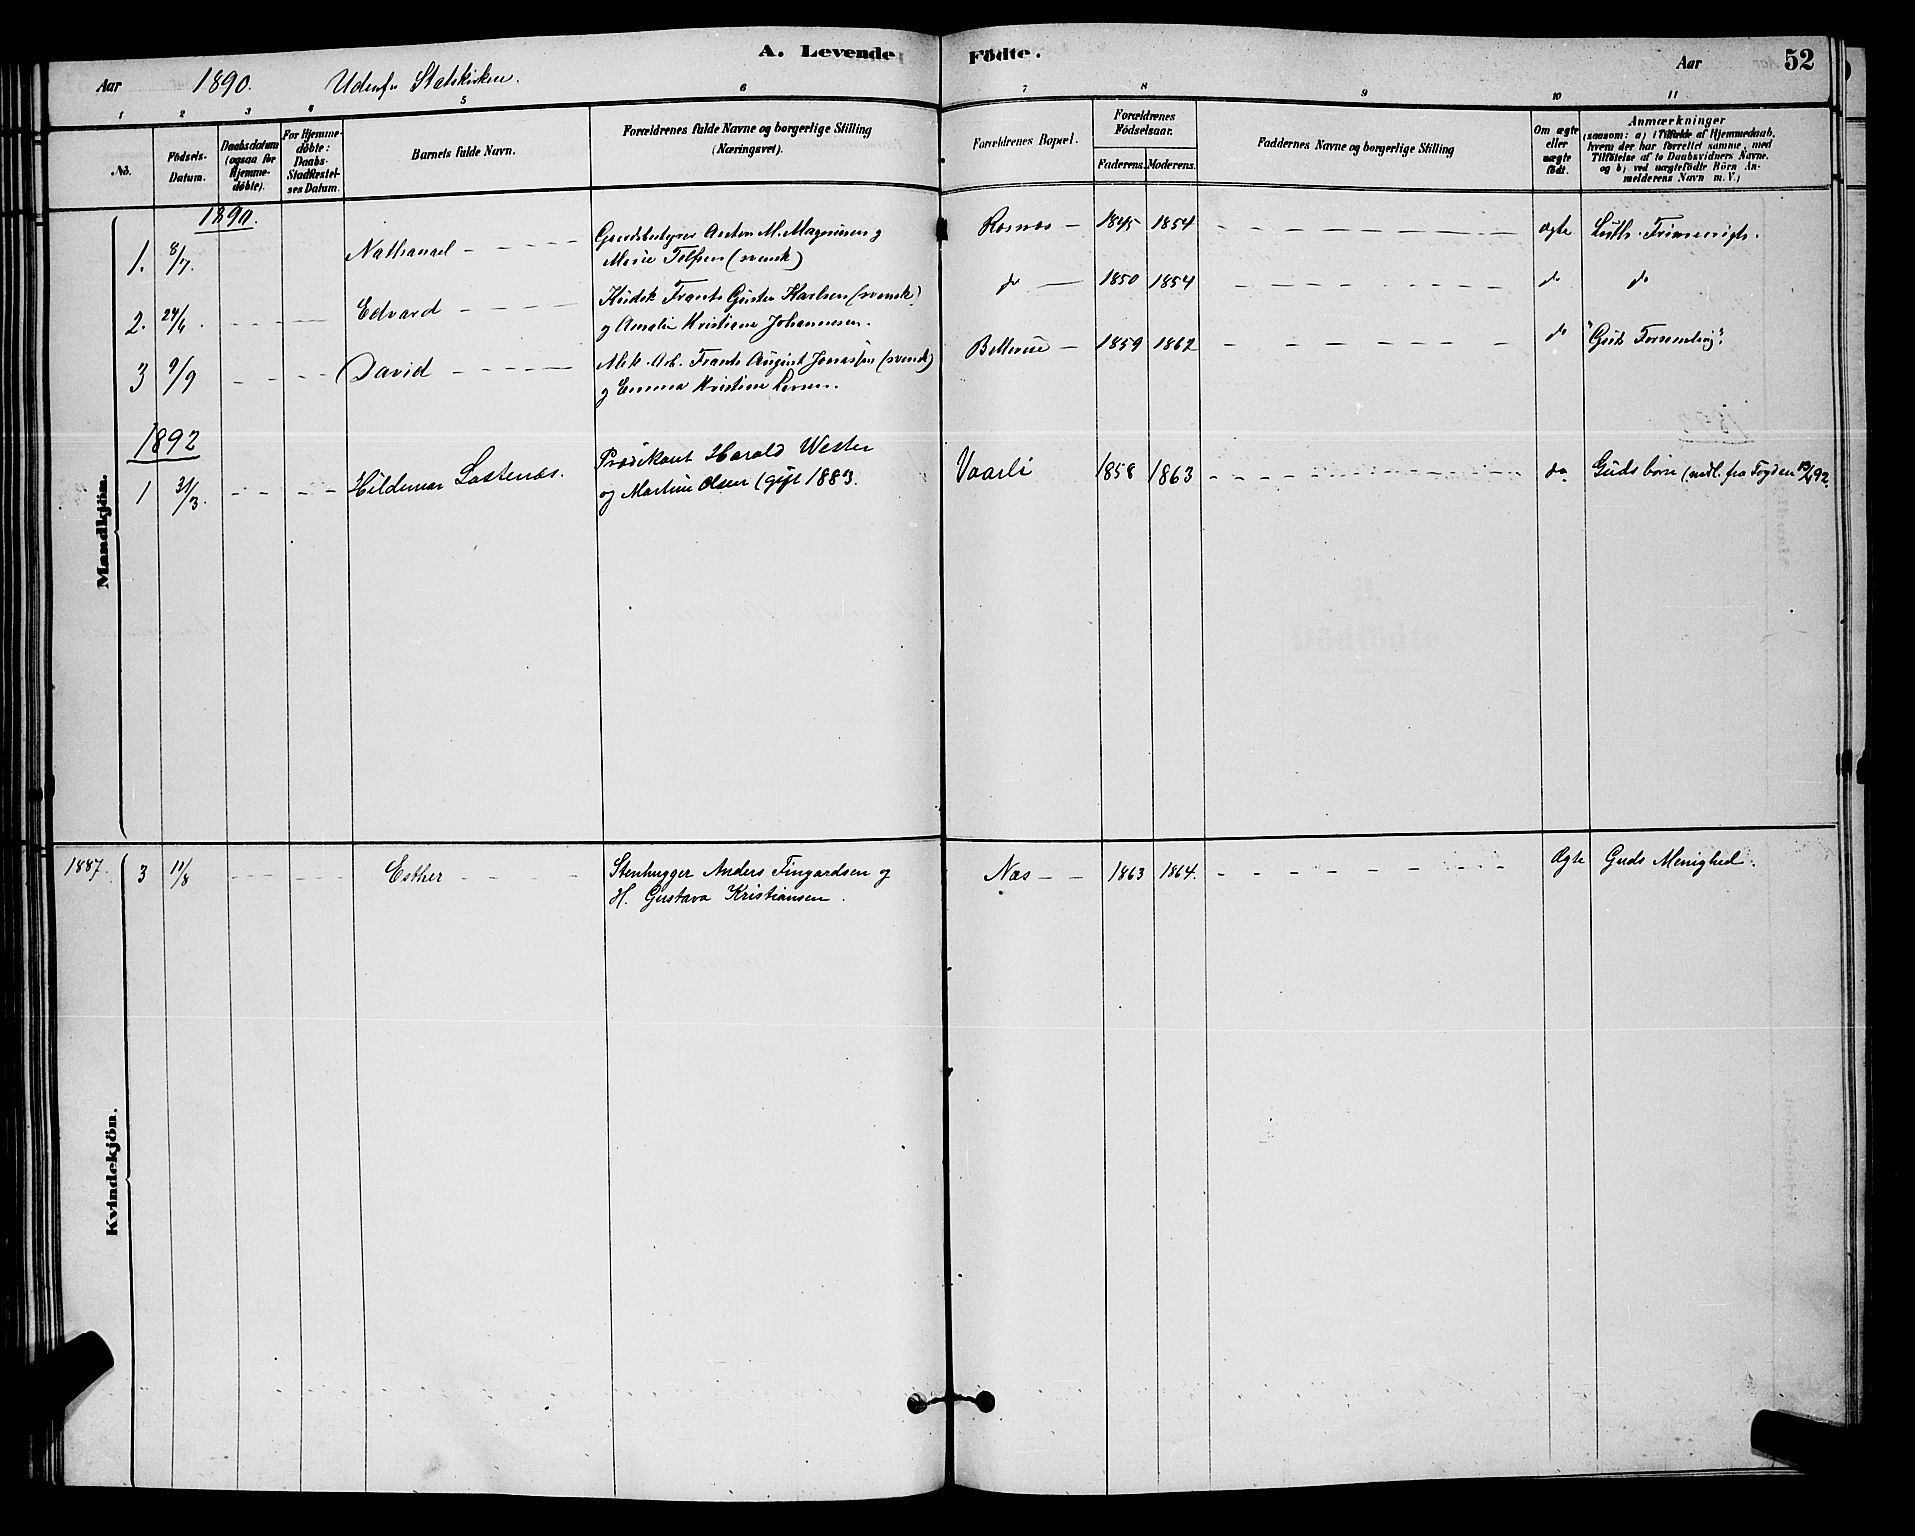 A. Levende Födte.
52
Aar 1890. Udenf. Statskirken. Aar
1 2 3 4 5 6 7 8 9 10 11
No.
Födsels-Datum.
Daabsdatum (ogsaa for Hjemme-döbte).
For Hjemme-döbte: Daabs-Stadfæstel-ses Datum.
Barnets fulde Navn.
Forældrenes fulde Navne og borgerlige Stilling (Næringsvei).
Forældrenes Bopæl.
Forældrenes Födselsaar.
Faderens. Moderens.
Faddernes Navne og borgerlige Stilling
Om ægte eller uægte födt.
Anmærkninger
(saasom: a) i Tilfælde af Hjemmedaab,
hvem der har forrettet samme, med
Tilföielse af to Daabsvidners Navne,
og b) ved uægtefödte Börn An-
melderens Navn m. V.)
Mandkjön.
1890.
1. 8/7. Nathanael Gaardsbestyrer Anton M. Magnussen og Rosnæs 1845 1854 ægte Luth. Frimenigh.
Marie (svensk)
2. 24/6. Edvard Kudsk Frants Gustav Karlsen (svensk) do 1850 1854 do do
og Amalie Kristiane Johannesen.
3 9/9 David Mek. Arb. Frants August Jonassen (svensk) Bellevue 1859 1862 do "Guds Forsamling".
og Emma Kristine
1892
1 31/3. Hildemar Lostenæs. Prædikant Harald Wester Vaarli 1858 1863 do. Guds börn (medl. fra Fogden 92.
og Martine Olsen (gift 1883.
Kvindekjön.
1887. 3 11/8 Esther Stenhugger Anders Fingardsen og Næs 1863 1864. Ægte Guds Menighed.
H. Gustava Kristiansen.